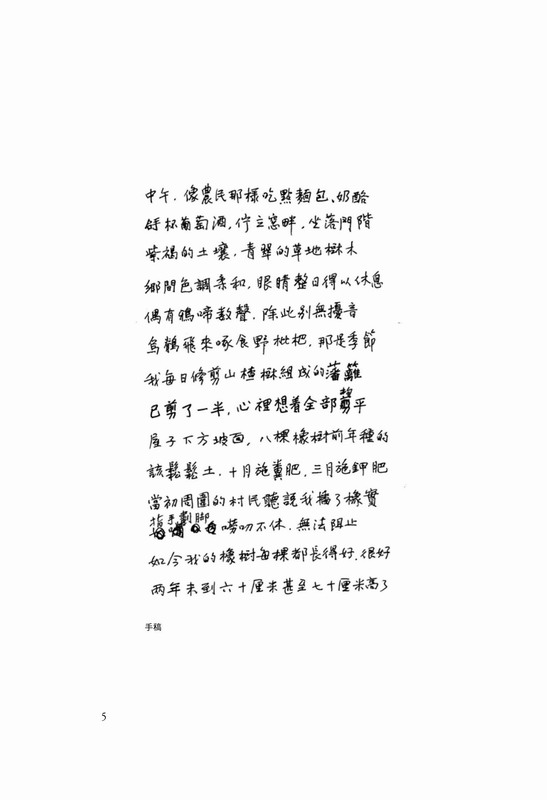 中午，像農民那樣吃點麵包、奶酪
舒杯葡萄酒，佇立窓畔，坐落門階
紫褐的土壤，青翠的草地樹木
鄉間色調柔和，眼睛整日得以休息
偶有鴉啼數聲，除此別無擾音
烏鶇飛來啄食野枇杷，那是季節
我每日修剪山楂樹組成的藩籬
已剪了一半，心裡想着全部剪平
屋子下方坡面，八棵橡樹前年種的
該鬆鬆土，十月施糞肥，三月施鉀肥
當初周圍的村民聽說我播了橡實
指手劃脚
嘮叨不休，無法阻止
如今我的橡樹每棵都長得好，很好
兩年未到六十厘米甚至七十厘米高了
手稿
5